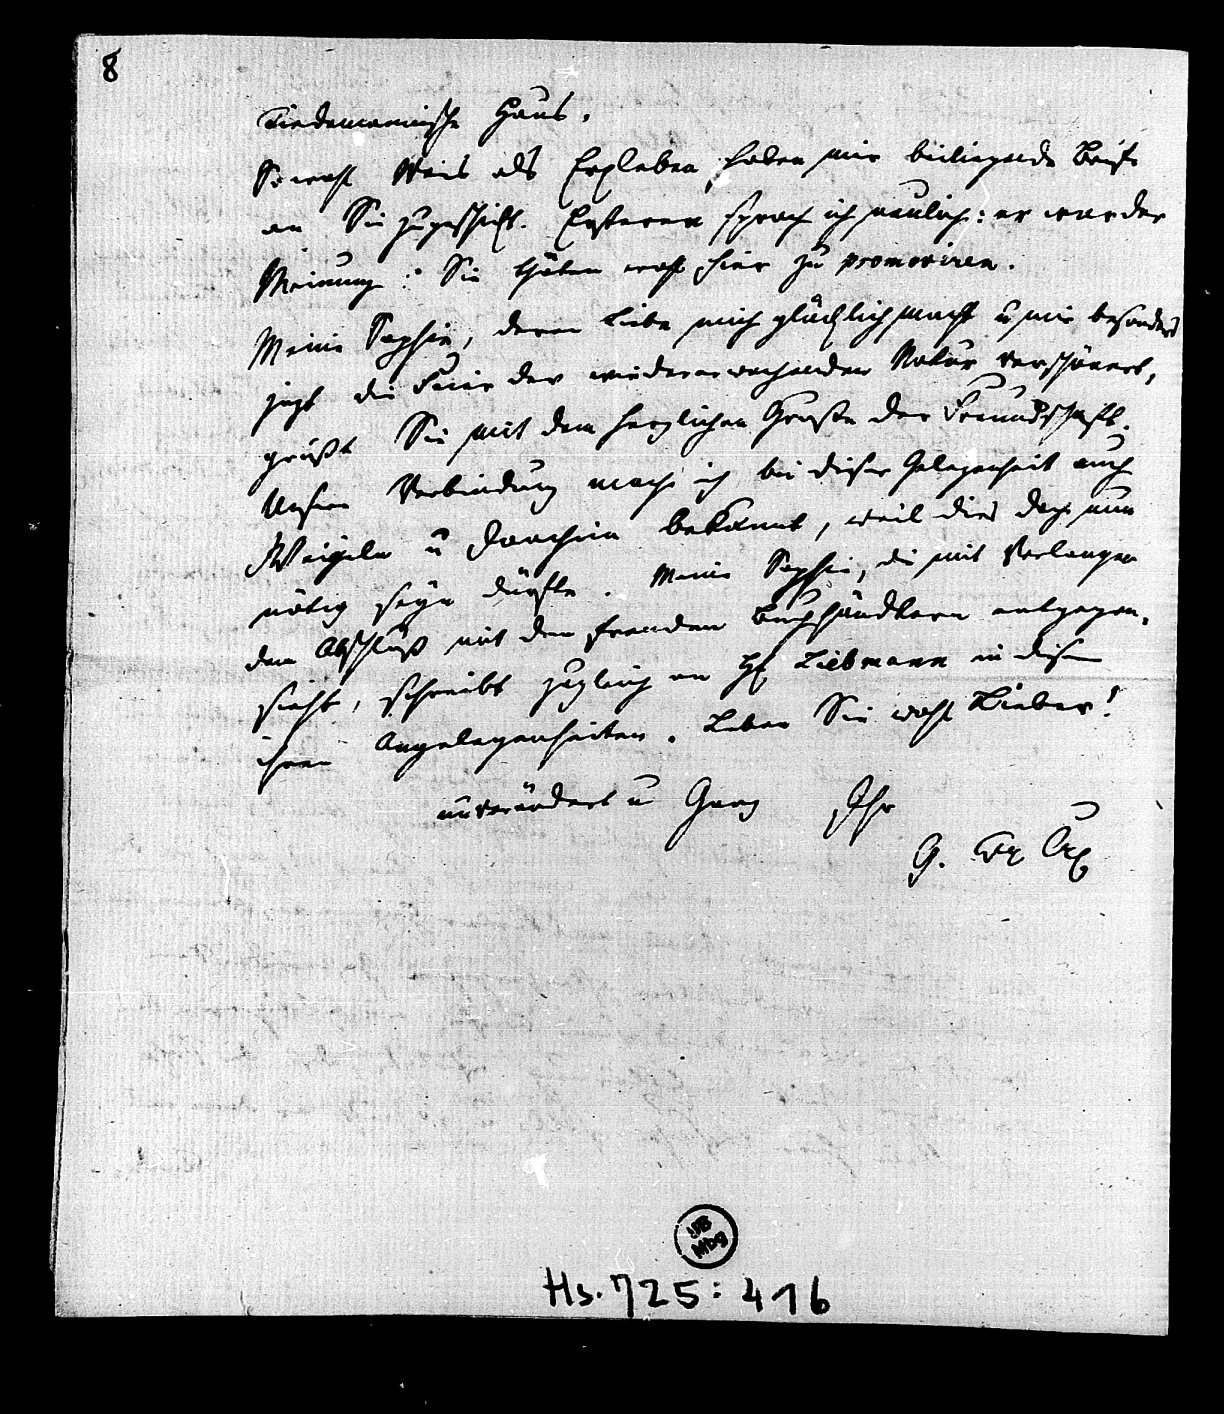 8
Tiedemannische Haus.
Sowohl Weis als Erxleben haben mir beiliegende Briefe
an Sie zugeschickt. Ersteren sprach ich neulich: er war der
Meinung: Sie thäten wohl hier zu promoviren.
Meine Sophie, deren Liebe mich glücklich macht u mir besonders
jezt die Feier der wiedererwachenden Natur verschönert,
grüßt Sie mit dem herzlichen Gruße der Freundschaft.
Unsere Verbindung mache ich bei dieser Gelegenheit auch
Weigeln u Joachim bekannt, weil dies doch nun
nötig seyn dürfte. Meine Sophie, die mit Verlangen
dem Abschluß mit den fremden Buchhändlern entgegen
sieht, schreibt zugleich an H Liebmann in diesen
ihren Angelegenheiten. Leben Sie wohl Lieber!
unverändert u Ganz Ihr
G. Fr Crz
UB
Mbg
Hs. 725: 416